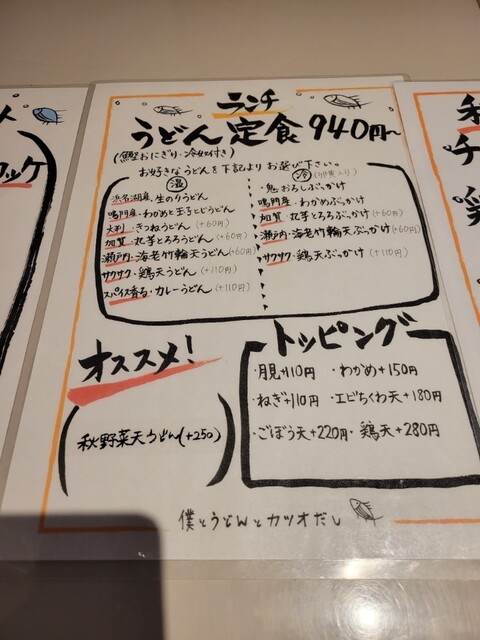 ランチ
うどん定食940円~
(鰹おにぎり・冷奴付き)
お好きなうどんを下記よりお選び下さい。
温
浜名湖産・生のりうどん
鳴門産・わかめと玉子とじうどん
大判・きつねうどん (+60円)
加賀・丸芋とろろうどん (+60円)
瀬戸内・海老竹輪天うどん(+60円)
サクサク・鶏天うどん (+110円)
スパイス香る・カレーうどん (+110円)
冷 (卵黄入り)
・鬼おろしぶっかけ
鳴門産・わかめぶっかけ
加賀・丸芋とろろぶっかけ (+60円)
瀬戸内・海老竹輪天ぶっかけ(+60円)
サクサク・鶏天ぶっかけ (+110円)
オススメ!
秋野菜天うどん(+250)
トッピング
・月見+110円 ・わかめ+150円
・ねぎ+110円 ・エビちくわ天+180円
・ごぼう天+220円・鶏天+280円
僕とうどんとカツオだし